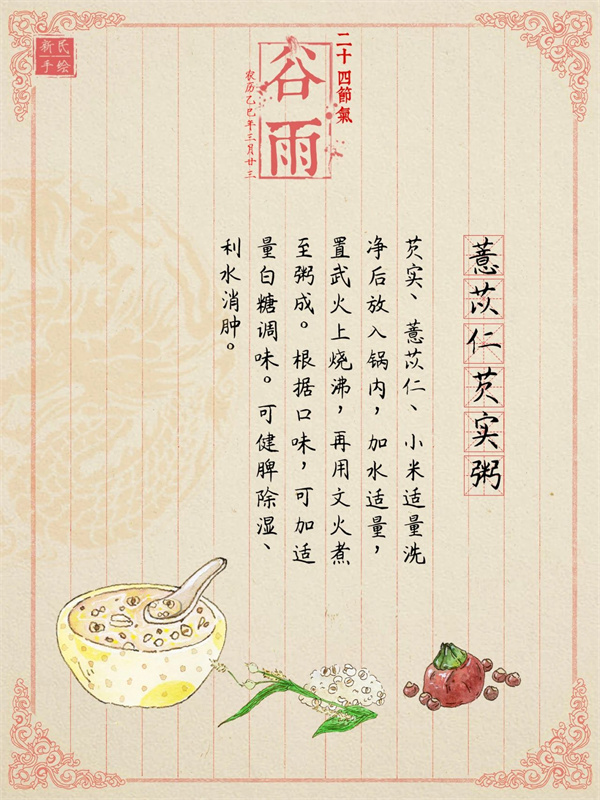 新民
手绘
二十四節氣
谷雨
农历乙巳年三月廿三
薏苡仁芡实粥
芡实、薏苡仁、小米适量洗
净后放入锅内，加水适量，
置武火上烧沸，再用文火煮
至粥成。根据口味，可加适
量白糖调味。可健脾除湿、
利水消肿。